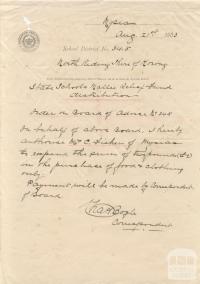 Mysia
Aug. 21st 1903
School District No. 348
North Riding Shire of Korong
State Schools Mallee Relief Fund
distribution
Order on Board of Advice No 348
On behalf of above Board, I hereby
authorise Mr C. Fisher of Mysia
to expend the sum of
on the purchase of food & clothing
only.
Payment will be made by Correspondent
of Board
Boyle
Correspondent